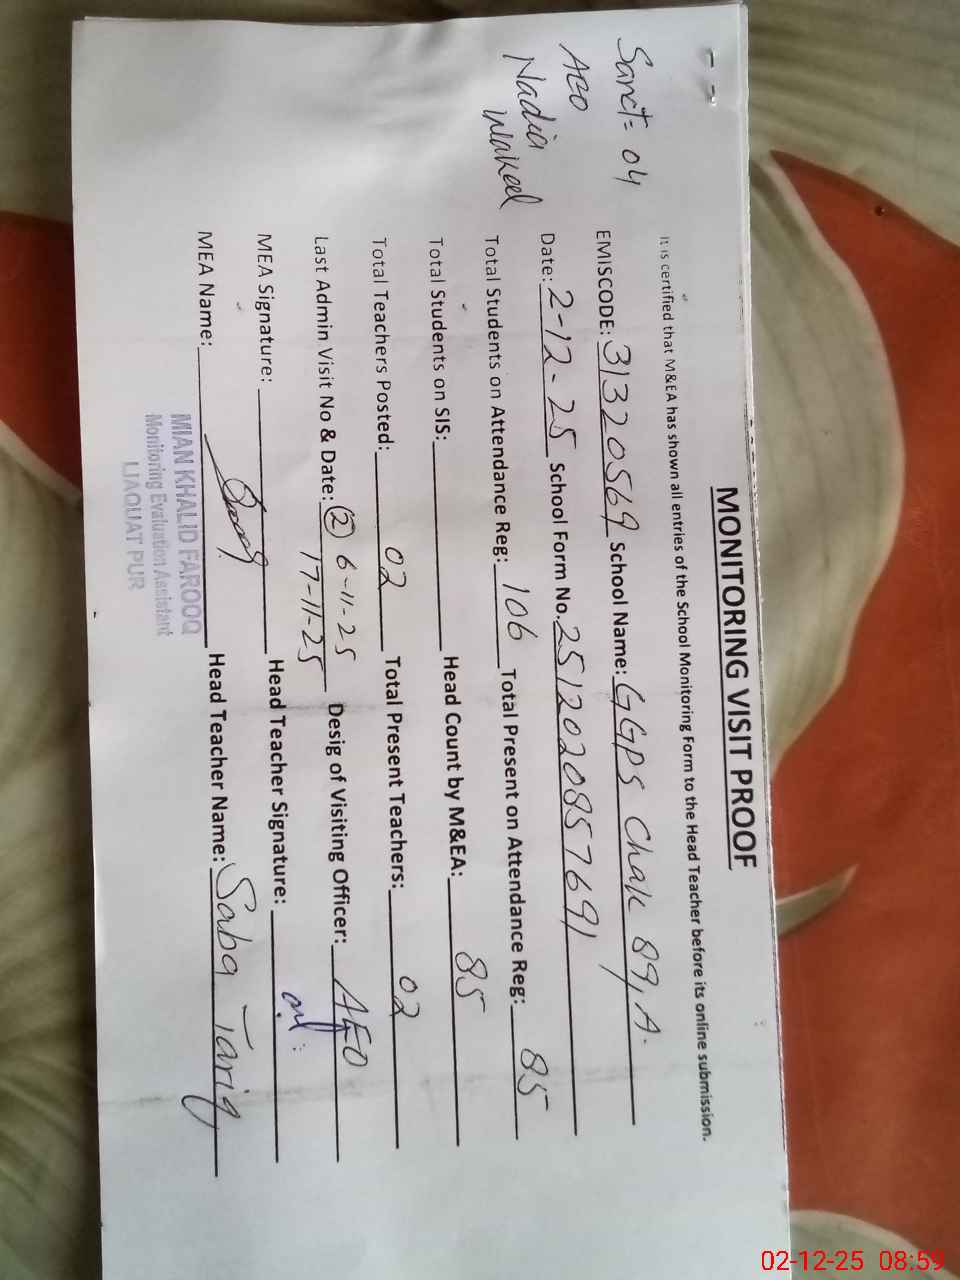 Sanct= 04
AEO
Nadia
Wakeel
MONITORING VISIT PROOF
It is certified that M&EA has shown all entries of the School Monitoring Form to the Head Teacher before its online submission.
EMISCODE: 31320569 School Name: GGPS Chak 89, A.
Date: 2-12-25 School Form No. 2512020857691
Total Students on Attendance Reg: 106 Total Present on Attendance Reg: 85
Total Students on SIS: Head Count by M&EA: 85
Total Teachers Posted: 02 Total Present Teachers: 02
Last Admin Visit No & Date: (2) 6-11-25 Desig of Visiting Officer: AEO
17-11-25
MEA Signature: Head Teacher Signature:
MEA Name: Head Teacher Name: Saba Tariq
MIAN KHALID FAROOQ
Monitoring Evaluation Assistant
LIAQUAT PUR
02-12-25 08:59